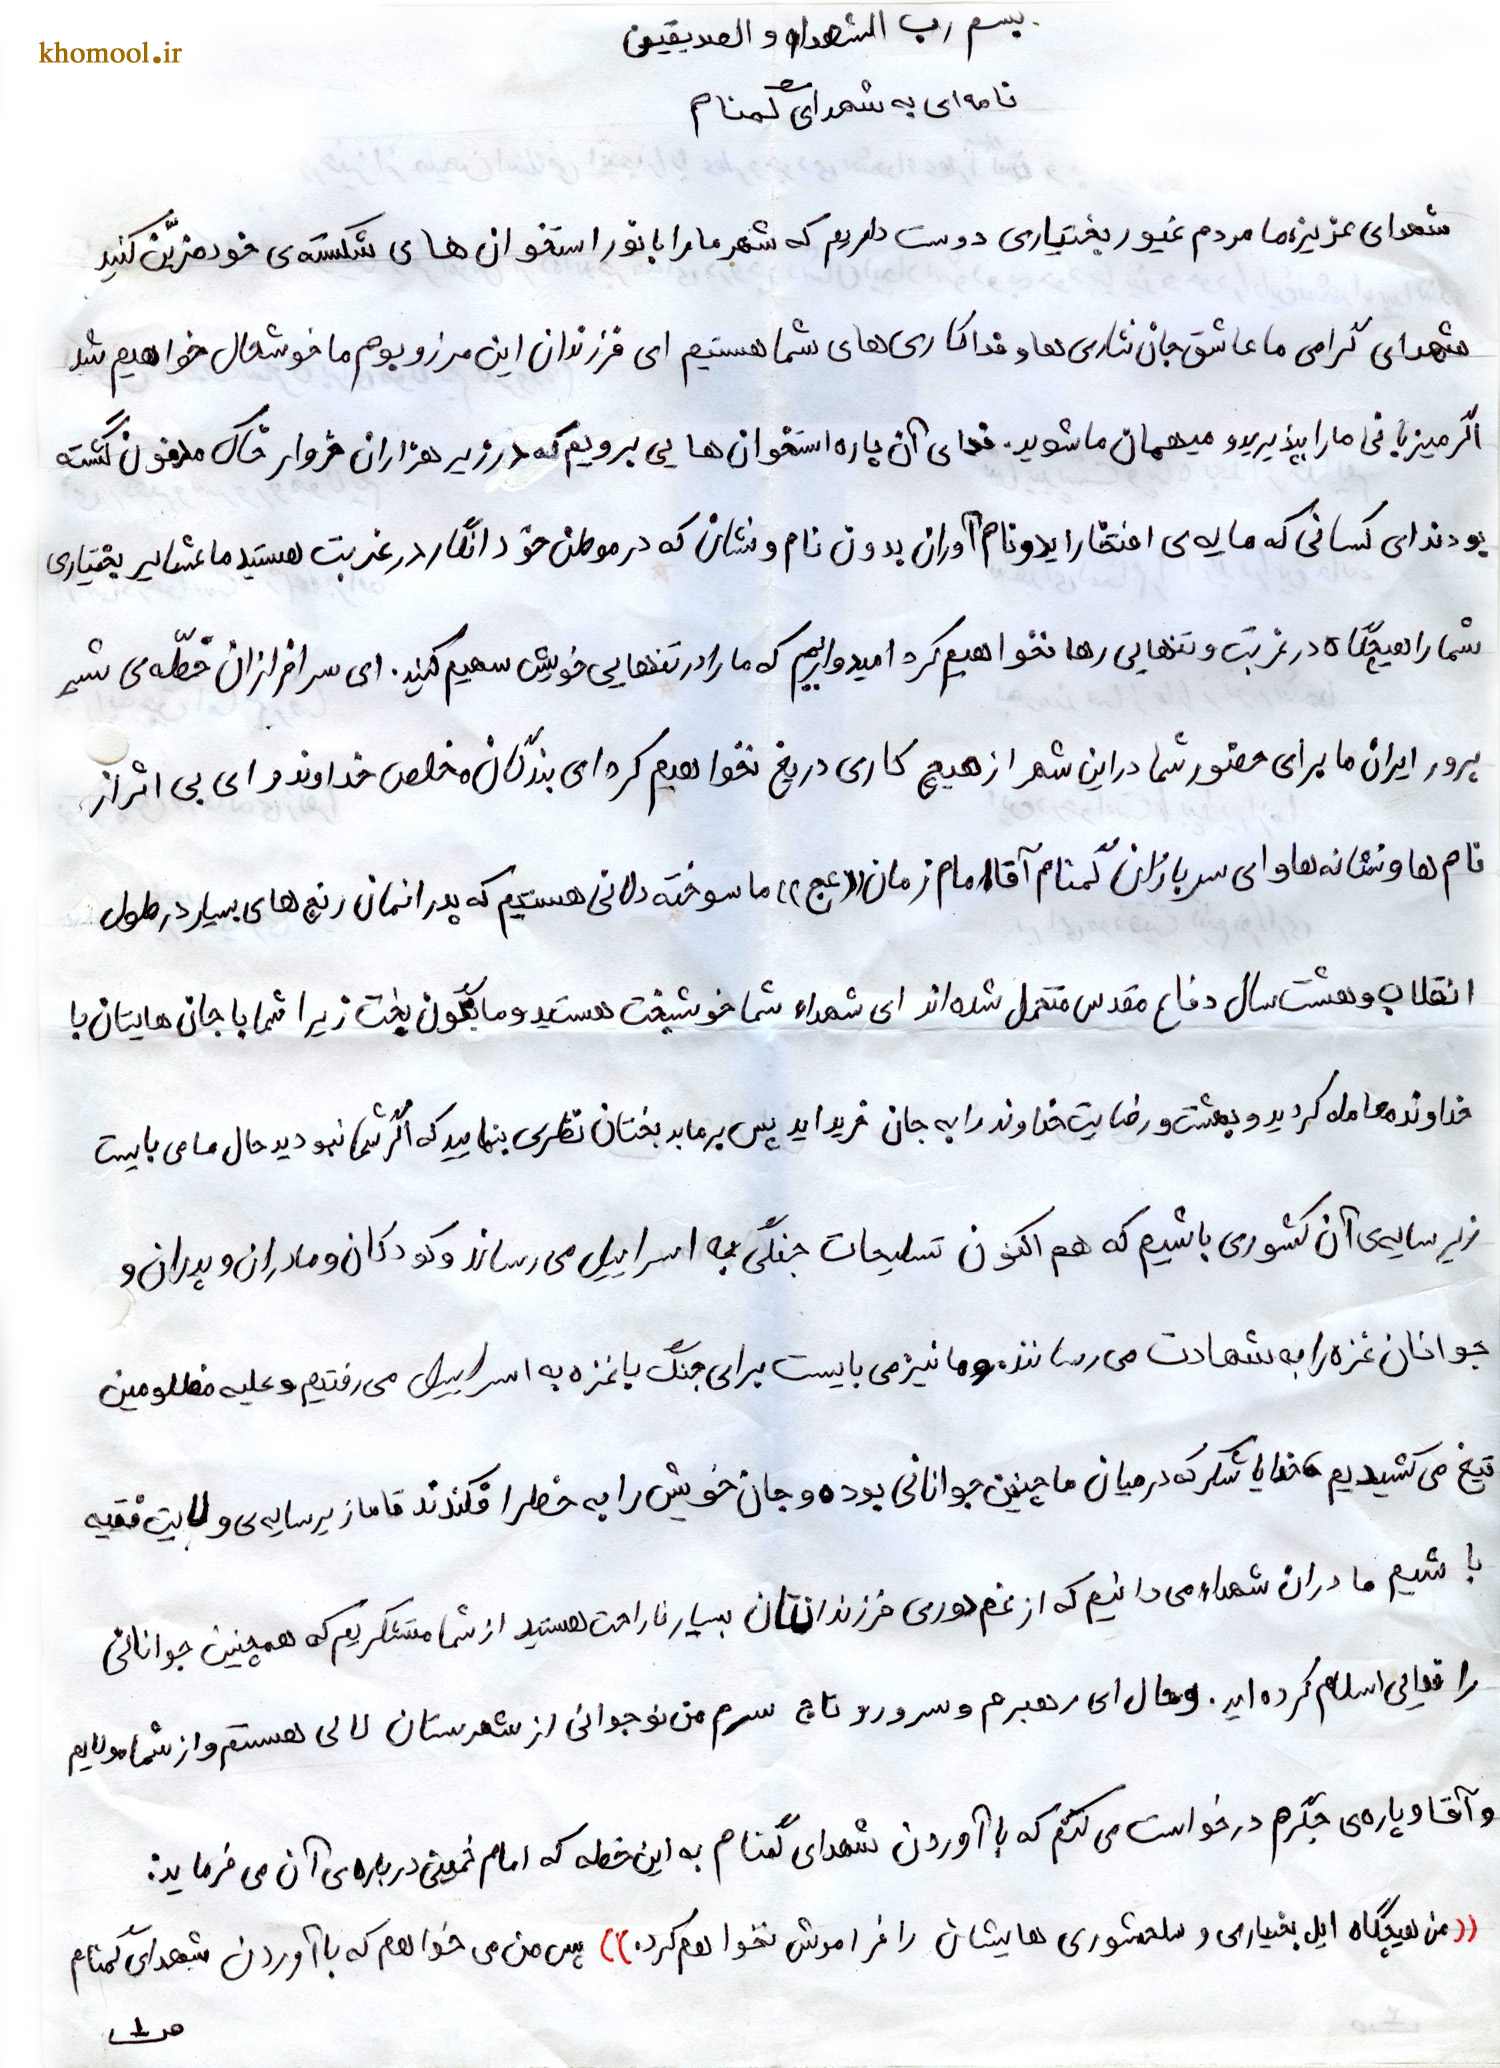 khomool.ir
بسم رب الشهداء و الصدیقین
نامه‌ای به شهدای گمنام
شهدای عزیز، ما مردم غیور بختیاری دوست داریم که شهر ما را با نور استخوان های شکسته‌ی خود مزیّن کنید
شهدای گرامی ما عاشق جان نثاری ها و فداکاری‌های شما هستیم ای فرزندان این مرز و بوم ما خوشحال خواهیم شد
اگر میزبانی ما را بپذیرید و میهمان ما شوید. فدای آن پاره استخوان ها یی برویم که در زیر هزاران خروار خاک مدفون گشته
بودند ای کسانی که مایه‌ی افتخارا ید و نام آوران بدون نام و نشان که در موطن خود انگار در غربت هستید ما عشایر بختیاری
شما را هیچگاه در غربت و تنهایی رها نخواهیم کرد امیدواریم که ما را در تنهایی خویش سهیم کنید. ای سرافرازان خطّه‌ی شیر
پرور ایران ما برای حضور شما در این شهر از هیچ کاری دریغ نخواهیم کرد ای بندگان مخلص خداوند و ای بی اثر از
نام ها و نشانه ها و ای سربازان گمنام آقا امام زمان ((عج)) ما سوخته دلانی هستیم که پدرانمان رنج های بسیار در طول
انقلاب و هشت سال دفاع مقدس متحمل شده اند ای شهداء شما خوشبخت هستید و ما نگون بخت زیرا شما با جان هایتان با
خداوند معامله کردید و بهشت و رضایت خداوند را به جان خریدا اید پس بر ما بدبختان نظری بنمایید که اگر شما نبودید حال ما می بایست
زیر سایه‌ی آن کشوری باشیم که هم اکنون تسلیحات جنگی به اسراییل می رساند و کودکان و مادران و پدران و
جوانان غزه را به شهادت می رسانند. و ما نیز می بایست برای جنگ با غزه به اسراییل می رفتیم و علیه مظلومین
تیغ می کشیدیم خدایا شکر که در میان ما چنین جوانانی بوده و جان خویش را به خطر افکندند تا ما زیر سایه‌ی ولایت فقیه
با شیم مادران شهداء می دانیم که از غم دوری فرزندانتان بسیار ناراحت هستید از شما متشکریم که همچنین جوانانی
را فدایی اسلام کرده اید. و حال ای رهبرم و سرور و تاج سرم من نوجوانی از شهرستان لالی هستم و از شما مولایم
و آقا و پاره‌ی جگرم درخواست می کنم که با آوردن شهدای گمنام به این خطه که امام خمینی درباره‌ی آن می فرماید:
((من هیچگاه ایل بختیاری و سلحشوری هایشان را فراموش نخواهم کرد.)) پس من می خواهم که با آوردن شهدای گمنام
ص ۱